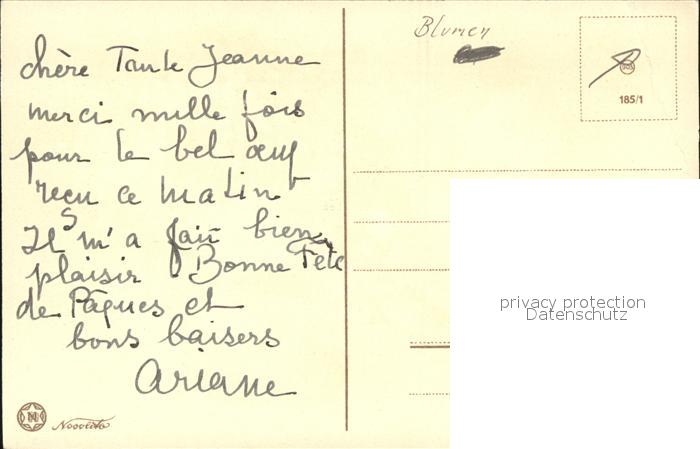 chère Tante Jeanne
merci mille fois
pour le bel œuf
reçu ce matin
Ils m'a fait bien
plaisir Bonne Fête
de Pâques et
bons baisers
Ariane
Blumen
185/1
privacy protection
Datenschutz